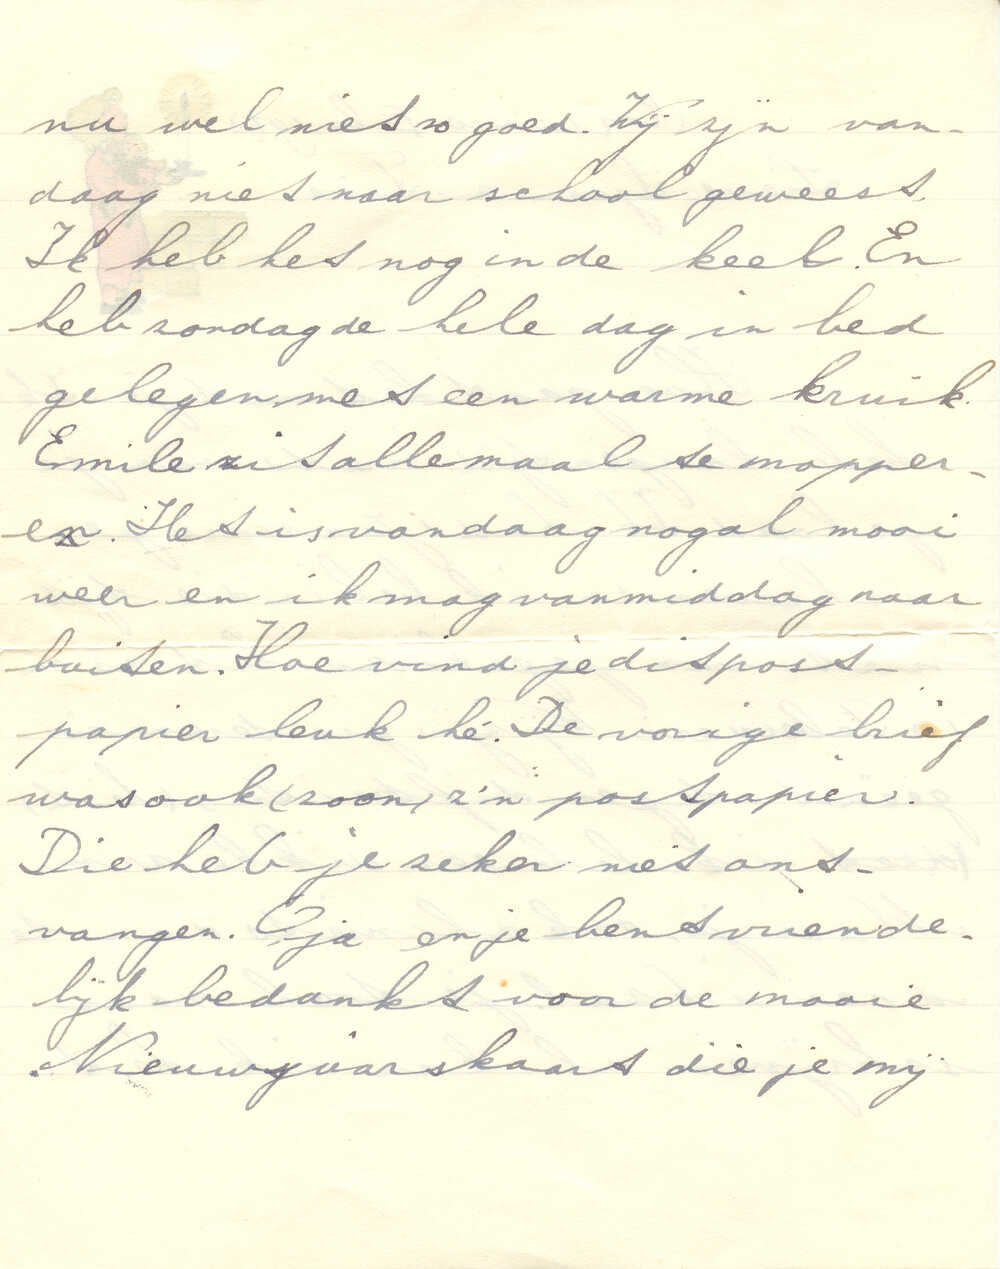 nu wel niet zo goed. Wij zijn van-
daag niet naar school geweest.
Ik heb het nog in de keel. En
heb zondag de hele dag in bed
gelegen, met een warme kruik.
Emile zit allemaal te mopper-
en. Het is vandaag nogal mooi
weer en ik mag vanmiddag naar
buiten. Hoe vind je dit post-
papier leuk hé. De vorige brief
was ook (zoon) z'n postpapier.
Die heb je zeker niet ont-
vangen. O, ja en je bent vriende-
lijk bedankt voor de mooie
Nieuwjaarskaart die je mij